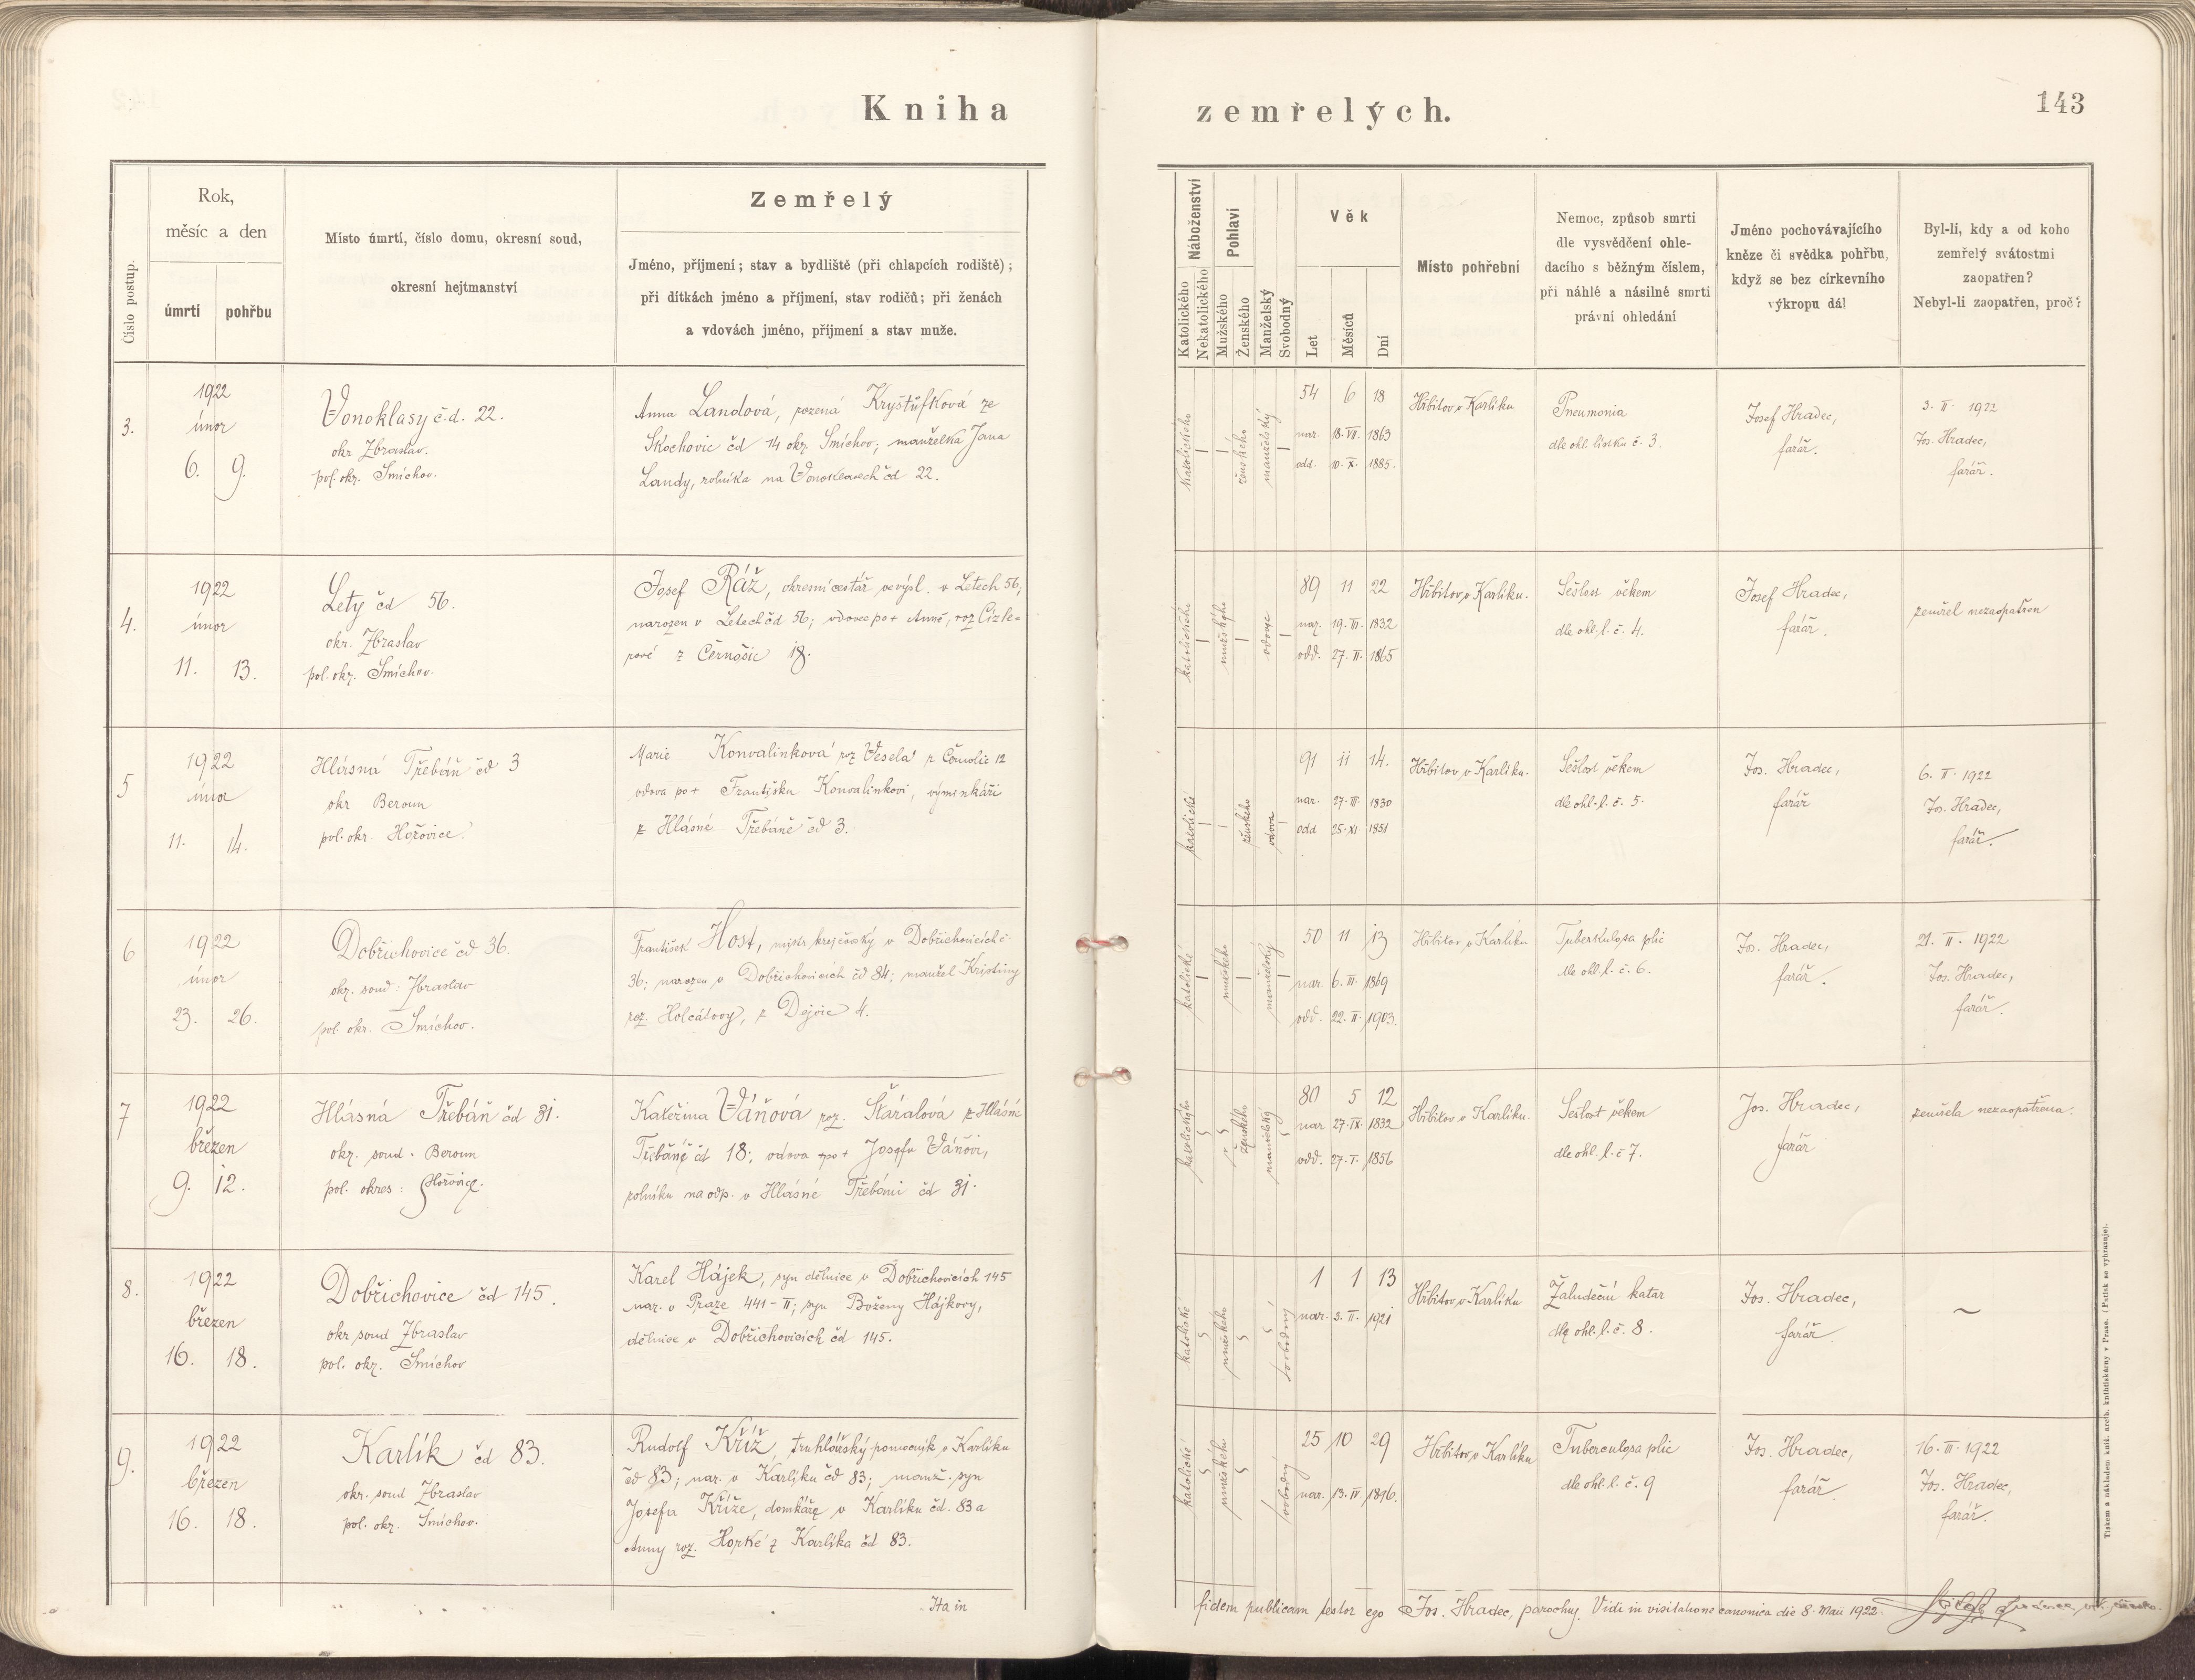 Kniha zemřelých.
143
Číslo postup.
Rok,
měsíc a den
úmrtí
pohřbu
Místo úmrtí, číslo domu, okresní soud,
okresní hejtmanství
Zemřelý
Jméno, příjmení; stav a bydliště (při chlapcích rodiště);
při dítkách jméno a příjmení, stav rodičů; při ženách
a vdovách jméno, příjmení a stav muže.
Náboženství
Katolického
Nekatolického
Pohlaví
Mužského
Ženského
Manželský
Svobodný
Věk
Let
Měsíců
Dní
Místo pohřební
Nemoc, způsob smrti
dle vysvědčení ohle-
dacího s běžným číslem,
při náhlé a násilné smrti
právní ohledání
Jméno pochovávajícího
kněze či svědka pohřbu,
když se bez církevního
výkropu dál
Byl-li, kdy a od koho
zemřelý svátostmi
zaopatřen?
Nebyl-li zaopatřen, proč?
3.
1922
únor
6. 9.
Vonoklasy č.d. 22.
okr Zbraslav.
pol. okr. Smíchov.
Anna Landová, rozená Kryštůfková ze
Skochovic čd 14 okr. Smíchov; manželka Jana
Landy, rolníka na Vonoklasech čd 22.
katolického
ženského
manželský
54 6 18
nar. 18. VII. 1863
odd. 10. X. 1885.
Hřbitov v Karlíku
Pneumonia
dle ohl. lístku č. 3.
Josef Hradec,
farář.
3. II. 1922
Jos. Hradec,
farář.
4.
1922
únor
11. 13.
Lety čd 56.
okr. Zbraslav
pol. okr. Smíchov.
Josef Ráž, okresní cestář ve výsl. v Letech 56,
narozen v Letech čd 56; vdovec po + Anně, roz Cízle=
rové z Černošic 18.
katolického
mužského
vdovec
89 11 22
nar. 19. II. 1832
odd. 27. II. 1865
Hřbitov v Karlíku.
Sešlost věkem
dle ohl. l. č. 4.
Josef Hradec,
farář.
zemřel nezaopatřen
5
1922
únor
11. 14.
Hlásná Třebáň čd 3
okr Beroun
pol. okr. Hořovice
Marie Konvalinková roz Veselá z Čemolic 12
vdova po + Františku Konvalinkovi, výminkáři
z Hlásné Třebáně čd 3.
katolické
ženského
vdova
91 11 14.
nar. 27. III. 1830
odd 25. XI. 1851
Hřbitov v Karlíku.
Sešlost věkem
dle ohl. l. č. 5.
Jos. Hradec,
farář
6. II. 1922
Jos. Hradec,
farář.
6
1922
únor
23. 26.
Dobřichovice čd 36.
okr. soud: Zbraslav
pol. okr. Smíchov.
František Host, mistr krejčovský v Dobřichovicích č
36; narozen v Dobřichovicích čd 84; manžel Kristiny
roz. Holcátovy, z Dejvic 4.
katolické
mužského
manželský
50 11 13
nar. 6. III. 1869
odd. 22. II. 1903.
Hřbitov v Karlíku
Tuberkulosa plic
dle ohl. l. č. 6.
Jos. Hradec,
farář.
21. II. 1922
Jos. Hradec,
farář.
7
1922
březen
9. 12.
Hlásná Třebáň čd 31.
okr. soud. Beroun
pol. okres: Hořovice.
Kateřina Váňová roz. Šťáralová z Hlásné
Třebáně čd 18; vdova po + Josefu Váňovi,
rolníku na odp. v Hlásné Třebáni čd 31.
katolického
ženského
manželský
80 5 12
nar 27. IX. 1832
odd. 27. I. 1856
Hřbitov v Karlíku.
Sešlost věkem
dle ohl. l. č 7.
Jos. Hradec,
farář
zemřela nezaopatřena.
8.
1922
březen
16. 18.
Dobřichovice čd 145.
okr soud Zbraslav
pol. okr. Smíchov
Karel Hájek, syn dělnice v Dobřichovicích 145
nar. v Praze 441-II; syn Boženy Hájkovy,
dělnice v Dobřichovicích čd 145.
katolické
mužského
svobodný
1 1 13
nar. 3. II. 1921
Hřbitov v Karlíku
Žaludeční katar
dle ohl. l. č. 8.
Jos. Hradec,
farář.
~
9.
1922
březen
16. 18.
Karlík čd 83.
okr. soud Zbraslav
pol. okr. Smíchov.
Rudolf Kříž, truhlářský pomocník v Karlíku
čd 83; nar. v Karlíku čd 83; manž. syn
Josefa Kříže, domkáře v Karlíku čd. 83 a
Anny roz. Horké z Karlíka čd 83.
katolické
mužského
svobodný
25 10 29
nar. 13. IV 1896.
Hřbitov v Karlíku
Tuberculosa plic
dle ohl. l. č. 9
Jos. Hradec,
farář.
16. III. 1922
Jos. Hradec,
farář.
Ita in fidem publicam testor ego Jos. Hradec, parochus. Vidi in visitatione canonica die 8. Maii 1922.
Tiskem a nákladem kniž. arcib. knihtiskárny v Praze. (Patisk se vyhrazuje).